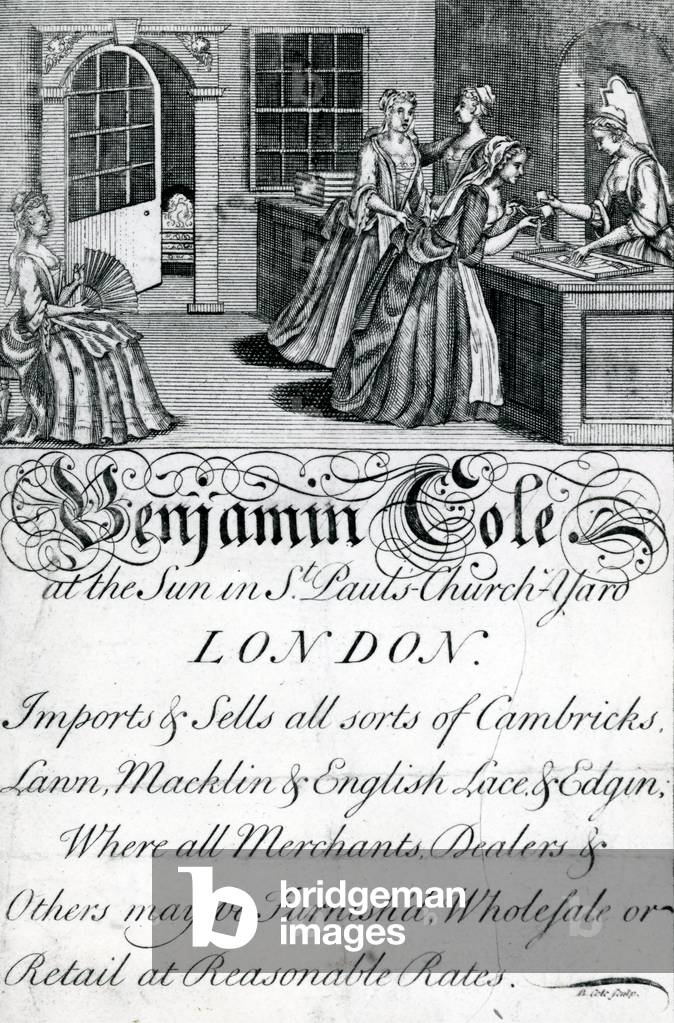 Benjamin Cole
at the Sun in St. Pauls-Church-Yard
LONDON.
Imports & Sells all sorts of Cambricks,
Lawn, Macklin & English Lace, & Edgin;
Where all Merchants, Dealers &
Others may be Furnish'd, Wholesale or
Retail at Reasonable Rates.
B. Cole sculp.
b bridgeman
images